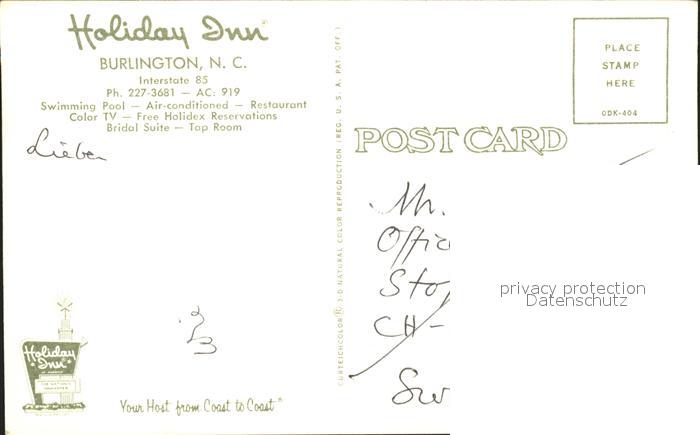 Holiday Inn®
BURLINGTON, N. C.
Interstate 85
Ph. 227-3681 — AC: 919
Swimming Pool — Air-conditioned — Restaurant
Color TV — Free Holidex Reservations
Bridal Suite — Tap Room
Lieber
PLACE
STAMP
HERE
ODK-404
POST CARD
CURTEICHCOLOR® 3-D NATURAL COLOR REPRODUCTION (REG. U. S. A. PAT. OFF.)
Mr.
Offic
Sto
CH-
Sw
privacy protection
Datenschutz
Holiday
Inn®
OF AMERICA
THE NATION'S
INNKEEPER
Your Host from Coast to Coast®